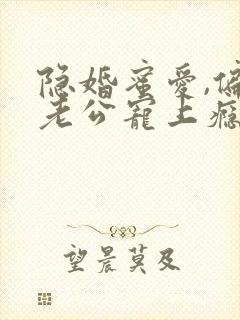 隐婚蜜爱,偏
老公宠上瘾
望晨莫及